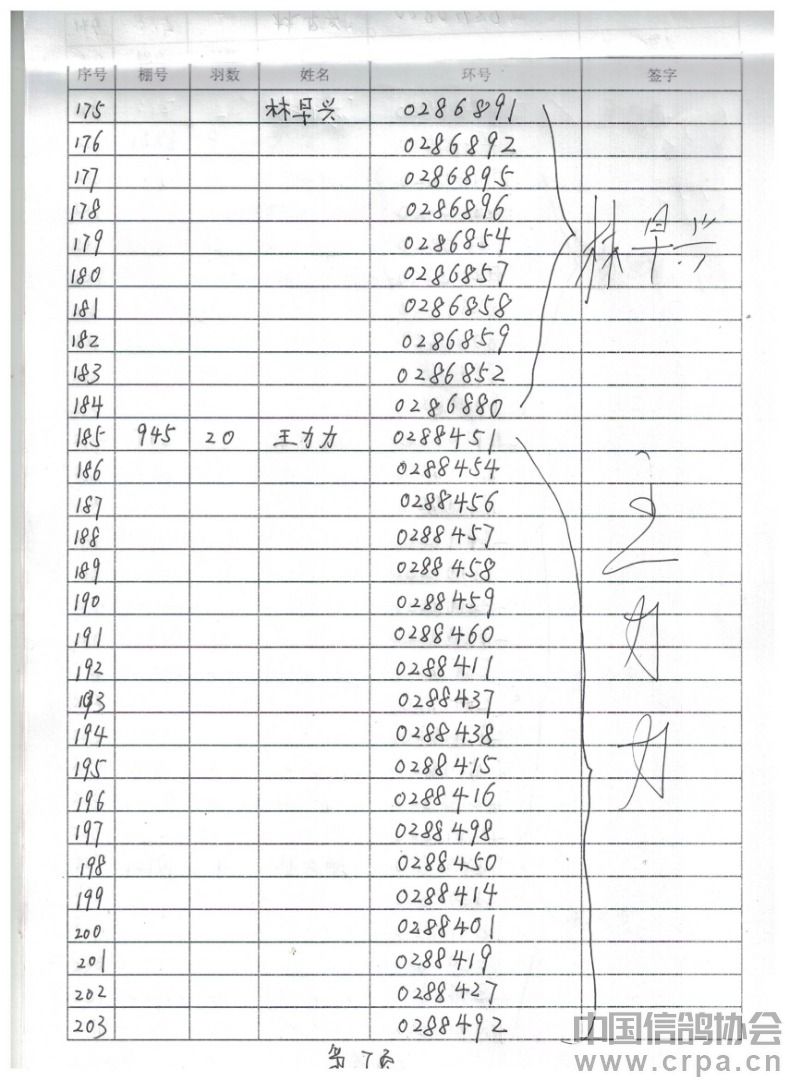 序号 棚号 羽数 姓名 环号 签字
175 林早兴 0286891
176 0286892
177 0286895
178 0286896
179 0286854
林早兴
180 0286857
181 0286858
182 0286859
183 0286852
184 0286880
185 945 20 王力力 0288451
186 0288454
187 0288456
188 0288457
王力力
189 0288458
190 0288459
191 0288460
192 0288411
193 0288437
194 0288438
195 0288415
196 0288416
197 0288498
198 0288450
199 0288414
200 0288401
201 0288419
202 0288427
203 0288492
第7页
中国信鸽协会
www.crpa.cn